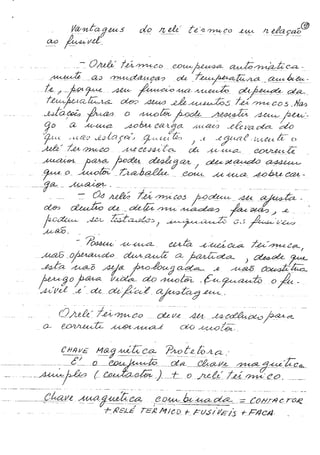 Vantagens do relé térmico em relação
ao fusível.
- O relé térmico compensa automática-
mente as mudanças de temperatura ambien-
te, porque seu funcionamento depende da
temperatura dos seus elementos térmicos. Nas
estações frias o motor pode resistir sem peri-
go a uma sobrecarga mais elevada do
que nas estações quentes, e igualmente o
relé térmico necessita de uma corrente
maior para poder desligar, deixando assim
que o motor trabalhe com uma sobrecar-
ga maior.
- Os relés térmicos podem ser ajusta-
dos dentro de determinadas faixas, e
podem ser testados, enquanto os fusíveis
não.
- Possui uma certa inércia térmica,
não operando durante a partida, desde que
esta não seja prolongada e não constitua
perigo para vida do motor. Enquanto o fu-
sível é de difícil ajustagem.
O relé térmico deve ser escolhido para
a corrente normal do motor.
CHAVE Magnética Protetora:
É o conjunto da chave magnética
simples (contactor) + o relé térmico.
Chave magnética combinada = CONTACTOR
+ RELÉ TERMICO + FUSIVEIS + FACA